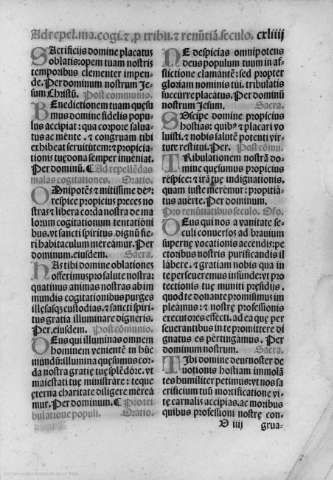 Ad repel. ma. cogi. ⁊ p tribu. ⁊ renūtiā. seculo. cxliiij
Sacrificiis domine placatus
oblatis: opem tuam nostris
temporibus clementer impen-
de. Per dominum nostrum Je-
sum Christū. Postcommunio.
Benedictionem tuam quesu-
mus domine fidelis popu-
lus accipiat: qua corpore salua-
tus ac mente: ⁊ congruam tibi
exhibeat seruitutem: ⁊ propicia-
tionis tue dona semper inueniat.
Per dominū. Ad repellēdas
malas cogitationes. Oratio.
Omnipotēs ⁊ mitissime deꝰ:
respice propicius preces no
stras: ⁊ libera corda nostra de ma
lorum cogitationum tentationi
bus. vt sancti spiritus dignū fie
ri habitaculum mereamur. Per
dominum. eiusdem. Sacra.
Has tibi domine oblationes
offerimus pro salute nostra:
quatinus animas nostras ab im
mundis cogitationibus purges
illesasq̄ custodias: ⁊ sancti spiri-
tus gratia illuminare digneris.
Per. eiusdem. Postcōmunio.
Deus qui illuminas omnem
hominem venientē in hūc
mundū: illumina quesumus cor-
da nostra gratie tue splēdore. vt
maiestati tue ministrare: ⁊ te que
eterna charitate diligere mereā
mur. Per dominum.
bulatione populi. Oratio.
Ne despicias omnipotens
deus populum tuum in af-
flictione clamantē: sed propter
gloriam nominis tui. tribulatis
succurre placatus. Per dominū
nostrum Jesum. Sacra.
Suscipe domine propicius
hostias: quibꝰ ⁊ placari vo
luisti. ⁊ nobis salutē potenti vir-
tute restitui. Per. Postcōmū.
Tribulationem nostrā do-
mine quesumus propicius
respice: ⁊ irā tue indignationis.
quam iuste meremur: propitia-
tus auerte. Per dominum.
Pro renūciātibus seculo. Ofo.
Deus qui nos a vanitate se-
culi conuersos ad brauium
superne vocationis accendis: pe
ctoribus nostris purificandis il
labere. ⁊ gratiam nobis qua in
te perseueremus infunde: vt pro
tectionis tue muniti presidijs.
quod te donante promisimus im
pleamus: ⁊ nostre professionis
executores effecti. ad ea que per
seuerantibus in te promittere di
gnatus es pertingamus. Per
dominum nostrum. Sacra.
Tibi domine deus noster de
uotionis hostiam immolā
tes humiliter petimus: vt nos sa
crificium tuū mortificatione vi-
te carnalis accipias. ac moribus
quibus professioni nostre con-
iiij grua-